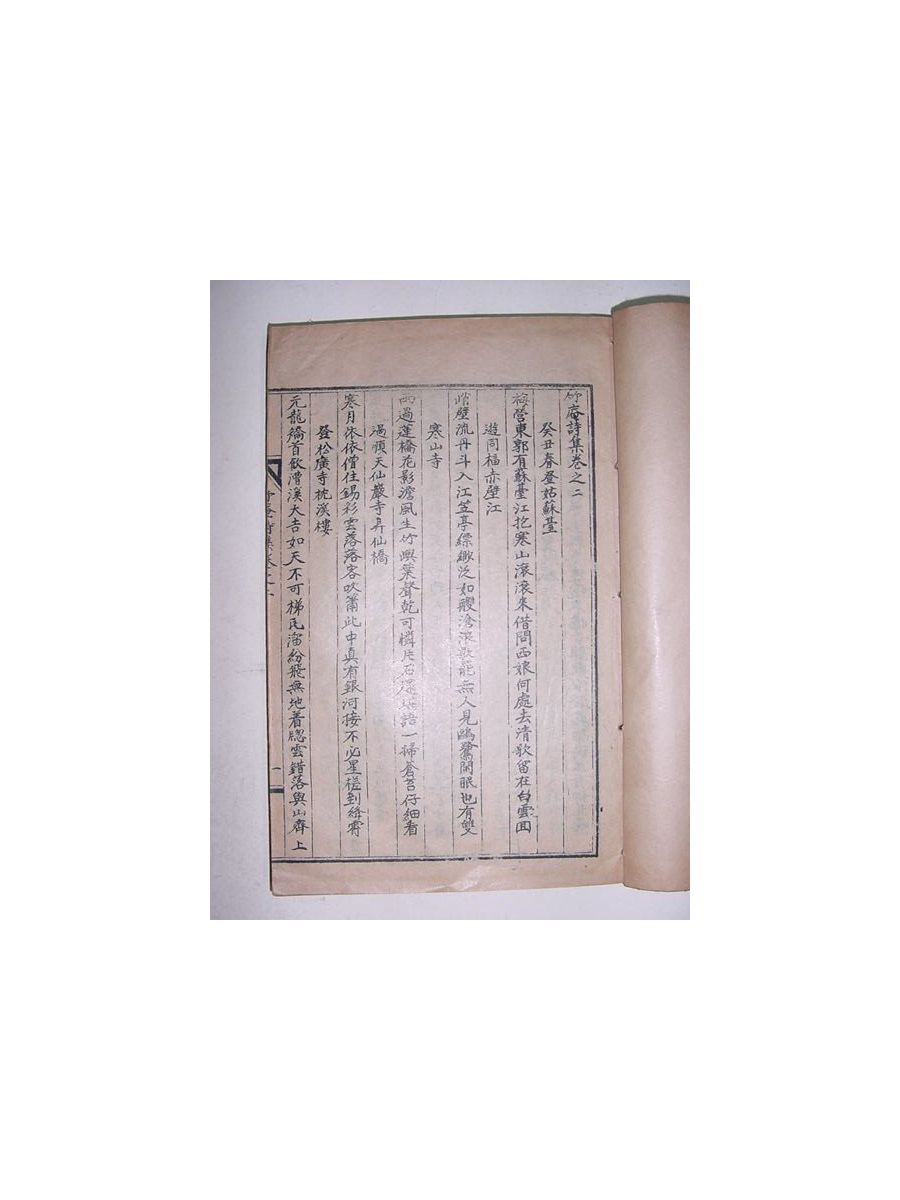 竹庵詩集卷之二
癸丑春登姑蘇臺
梅營東郭有蘇臺江抱寒山滾滾來借問西娘何處去清歌留在白雲囬
遊同福赤壁江
壁流丹斗入江笠亭縹緲泛如艭滄浪歌罷無人見鷗鷺閑眠也有雙
寒山寺
雨過蓬橋花影澹風生竹輿葉聲乾可憐片石堪共語一掃蒼苔仔細看
過順天仙巖寺昇仙橋
寒月依依僧住錫彩雲落落客吹簫此中真有銀河接不必星槎到絳霄
登松廣寺枕溪樓
元龍矯首飲漕溪大吉如天不可梯瓦溜紛飛無地着牕雲錯落與山齊上